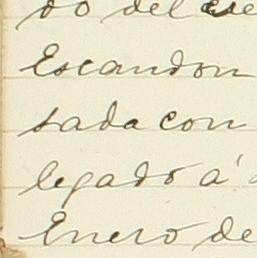 do del
Escandon
sada con
legado á
Enero de